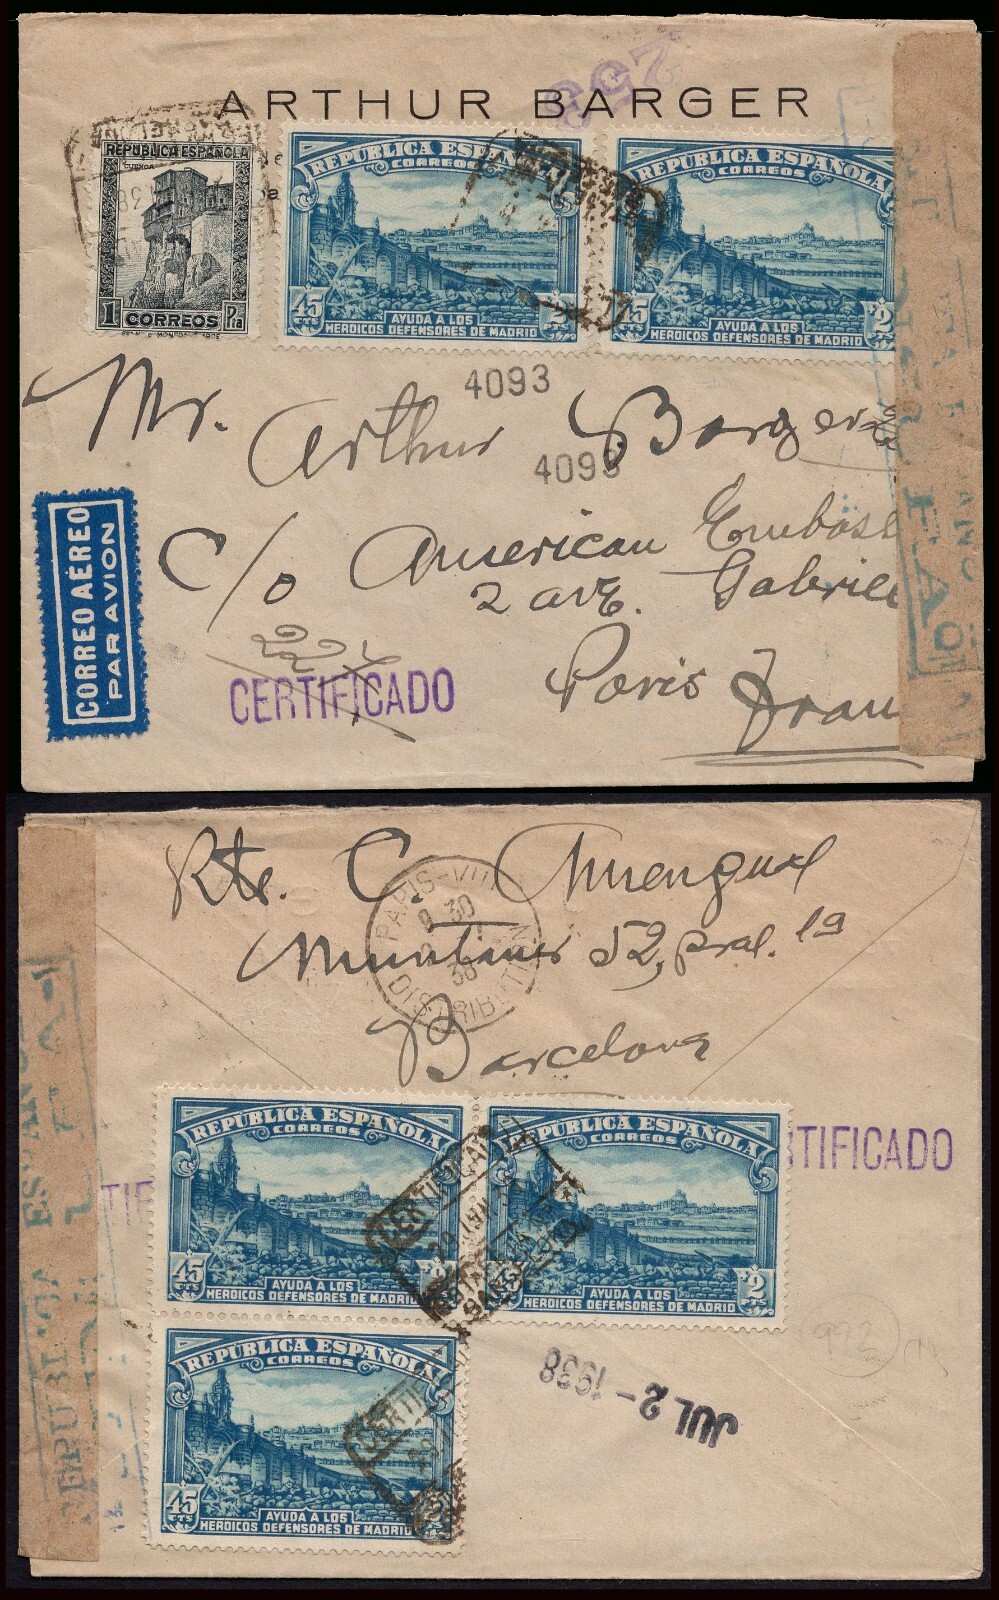 ARTHUR BARGER
REPUBLICA ESPAÑOLA
CUENCA
1 Pta
CORREOS
REPUBLICA ESPAÑOLA
CORREOS
45 CTS
2
AYUDA A LOS
HEROICOS DEFENSORES DE MADRID
REPUBLICA ESPAÑOLA
CORREOS
45 CTS
2
AYUDA A LOS
HEROICOS DEFENSORES DE MADRID
4093
4093
Mr. Arthur Barger
c/o American Embass
2 ave. Gabriel
Paris
Fran
CORREO AÉREO
PAR AVION
CERTIFICADO
Rte. C. Amengual
Muntaner 52, pral. 1ª
Barcelona
PARIS-VIII
DISTRIBUTION
38
REPUBLICA ESPAÑOLA
CORREOS
45 CTS
2
AYUDA A LOS
HEROICOS DEFENSORES DE MADRID
REPUBLICA ESPAÑOLA
CORREOS
45
2 PTS
AYUDA A LOS
HEROICOS DEFENSORES DE MADRID
TIFICADO
REPUBLICA ESPAÑOLA
CORREOS
45 CTS
AYUDA A LOS
HEROICOS DEFENSORES DE MADRID
CERTIFICADO
JUL 2 - 1938
992